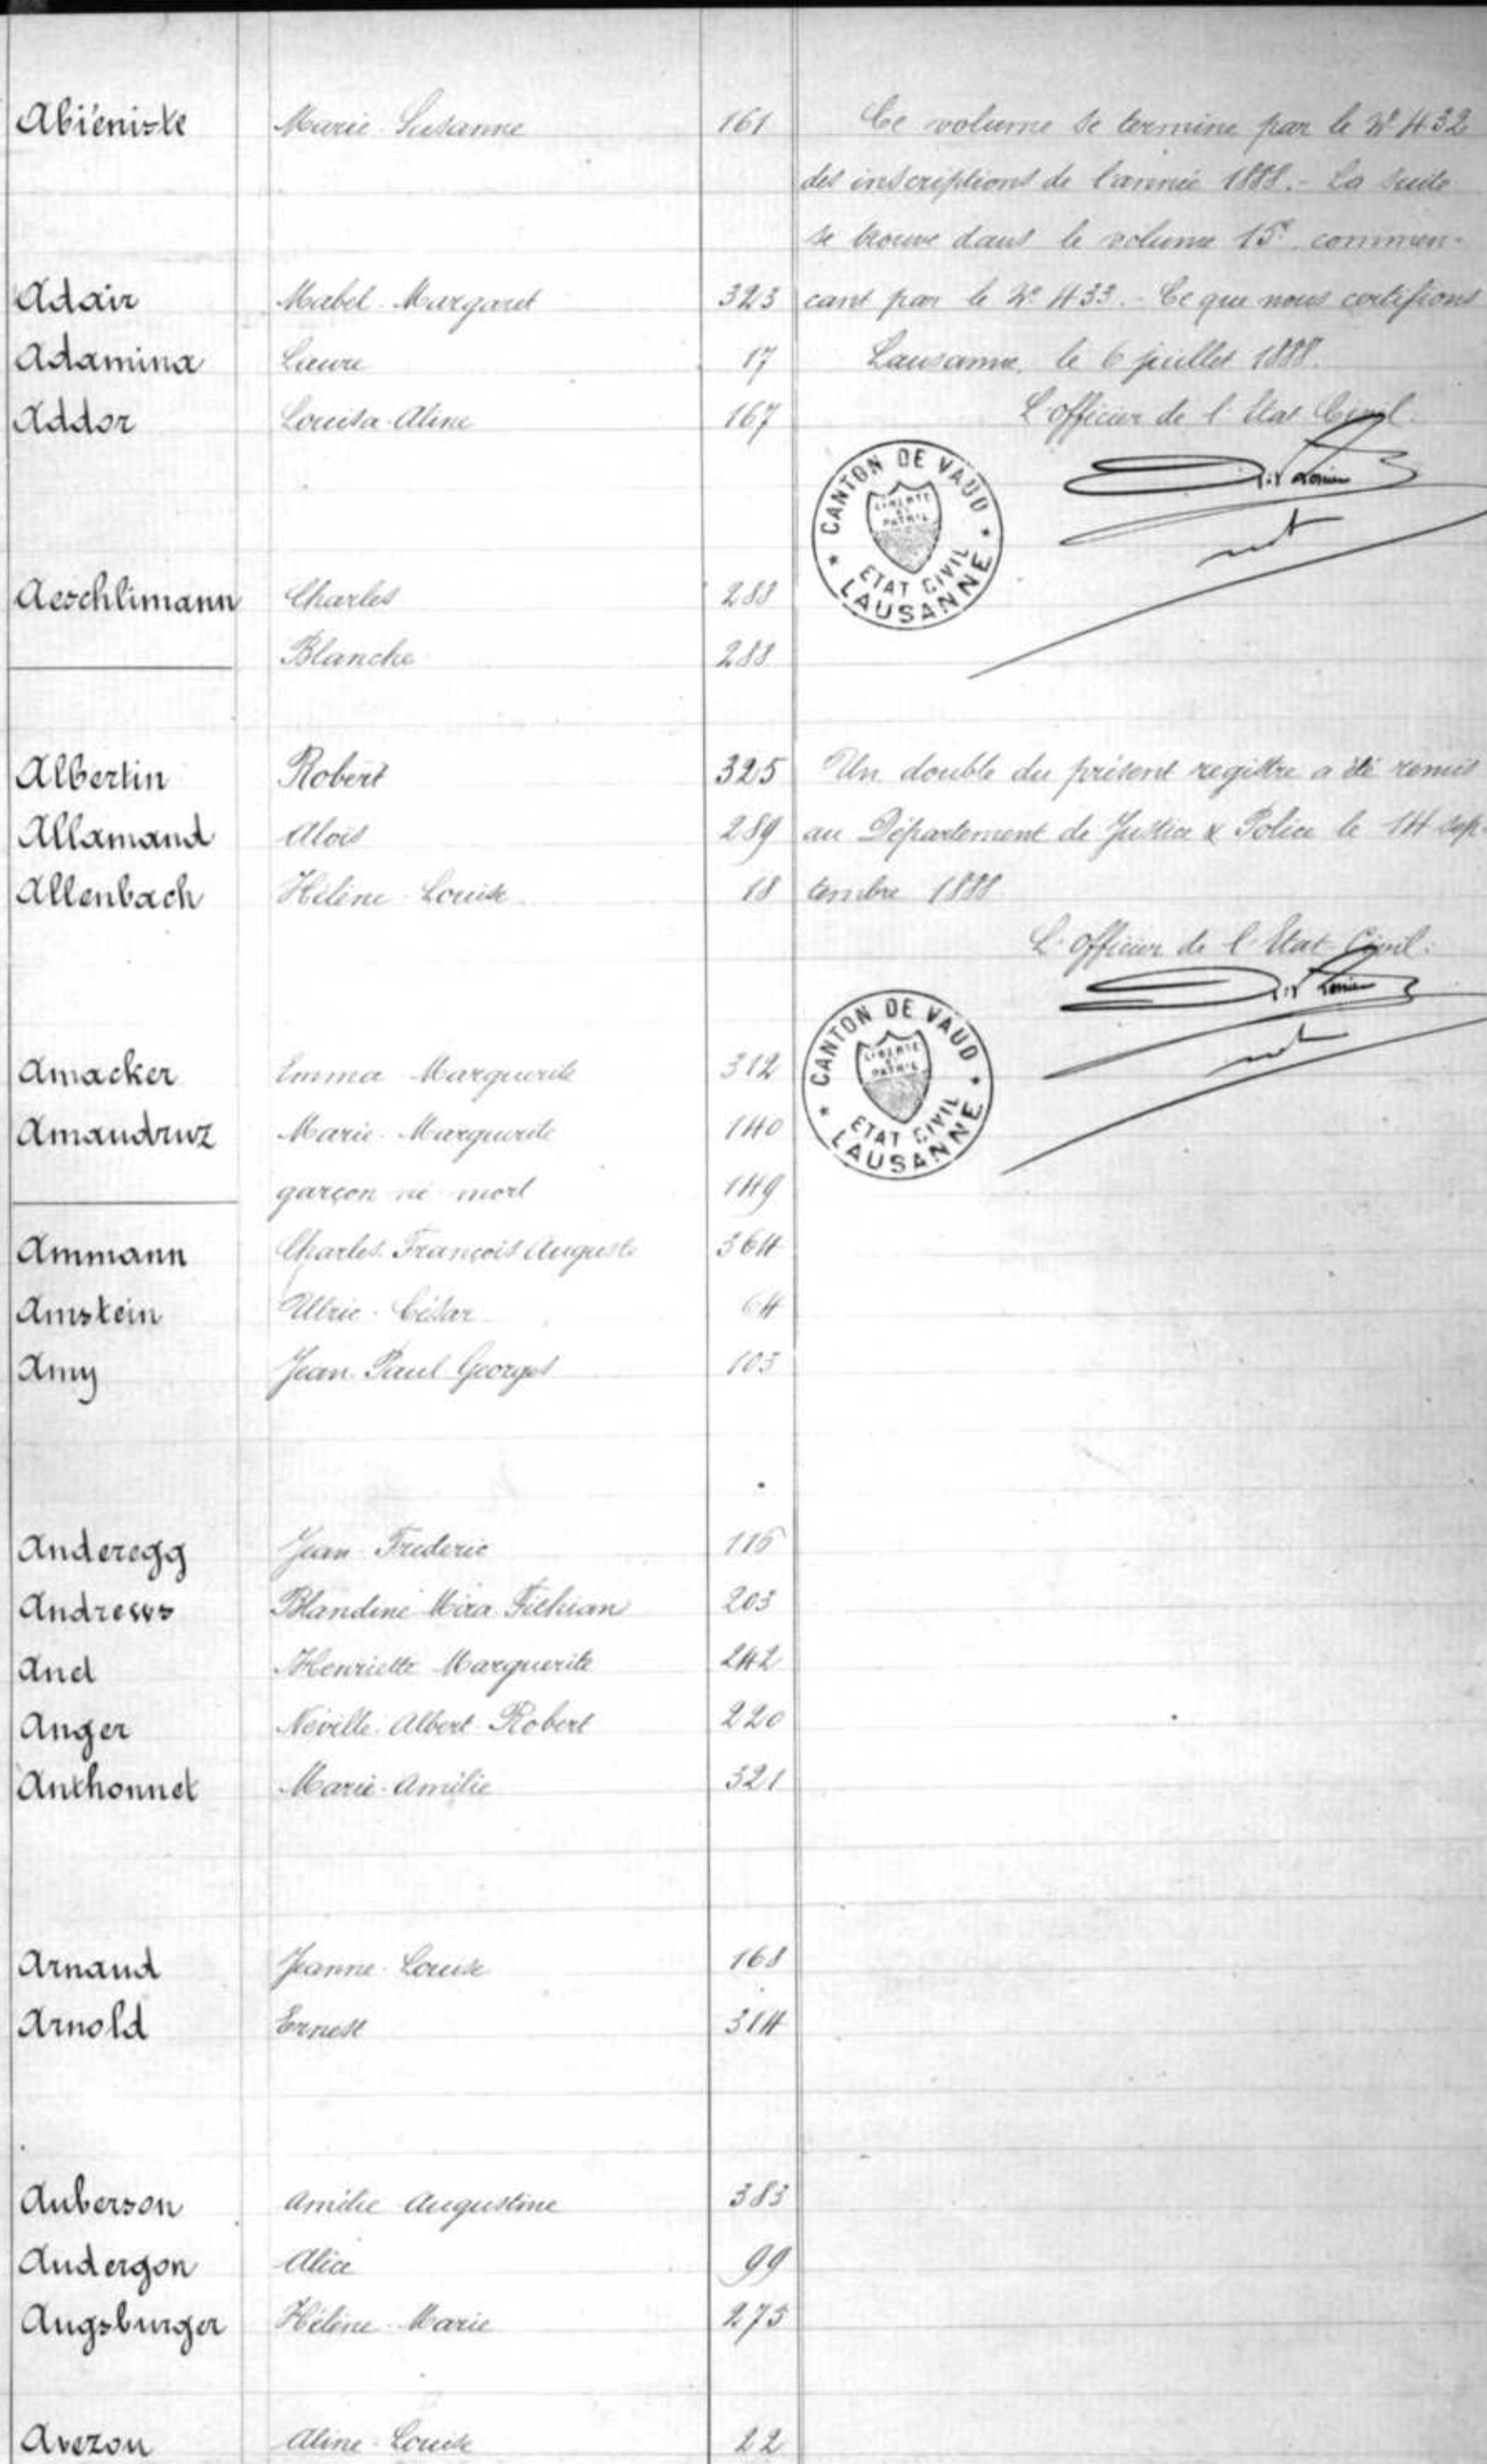 Abiéniste Marie-Susanne 161
Adair Mabel-Margaret 323
Adamina Laure 17
Addor Louisa-Aline 167
Aeschlimann Charles 288
Blanche 288
Albertin Robert 325
Allamand Aloïs 289
Allenbach Hélène-Louise 18
Amacker Emma Marguerite 312
Amaudruz Marie-Marguerite 140
garçon né-mort 149
Ammann Charles-François Auguste 364
Amstein Ulric-César 64
Amy Jean-Paul Georges 103
Anderegg Jean-Frédéric 115
Andrews Blandine 203
And Henriette Marguerite 242
Anger Néville-Albert-Robert 220
Anthonnet Marie-Amélie 321
Arnaud Jeanne-Louise 168
Arnold Ernest 314
Auberson Amélie Augustine 383
Audergon Alice 99
Augsburger Hélène-Marie 275
Avezou Aline-Louise 22
Ce volume se termine par le Nº 432
des inscriptions de l'année 1888. - La suite
se trouve dans le volume 15e commen-
cant par le Nº 433. - Ce que nous certifions
Lausanne, le 6 juillet 1888.
L'officier de l'Etat Civil.
CANTON DE VAUD
LIBERTÉ
ET
PATRIE
ETAT CIVIL
LAUSANNE
Un double du présent registre a été remis
au Département de Justice & Police le 14 sep-
tembre 1888.
L'officier de l'Etat-Civil:
CANTON DE VAUD
LIBERTÉ
ET
PATRIE
ETAT CIVIL
LAUSANNE